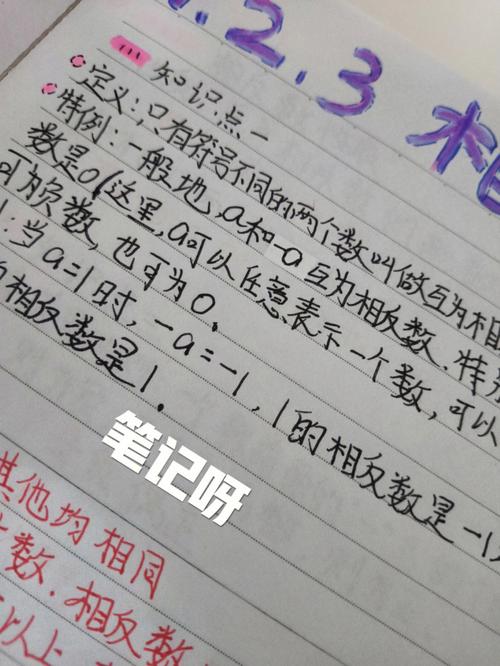 .2.3 相
知识点一
定义:只有符号不同的两个数叫做互为相
特例:一般地,a和-a互为相反数.特别
数是0(这里,a可以任意表示一个数,可以
可为负数,也可为0.
当a=1时,-a=-1,1的相反数是-1
的相反数是1.
笔记呀
其他均相同
数.相反数
以上